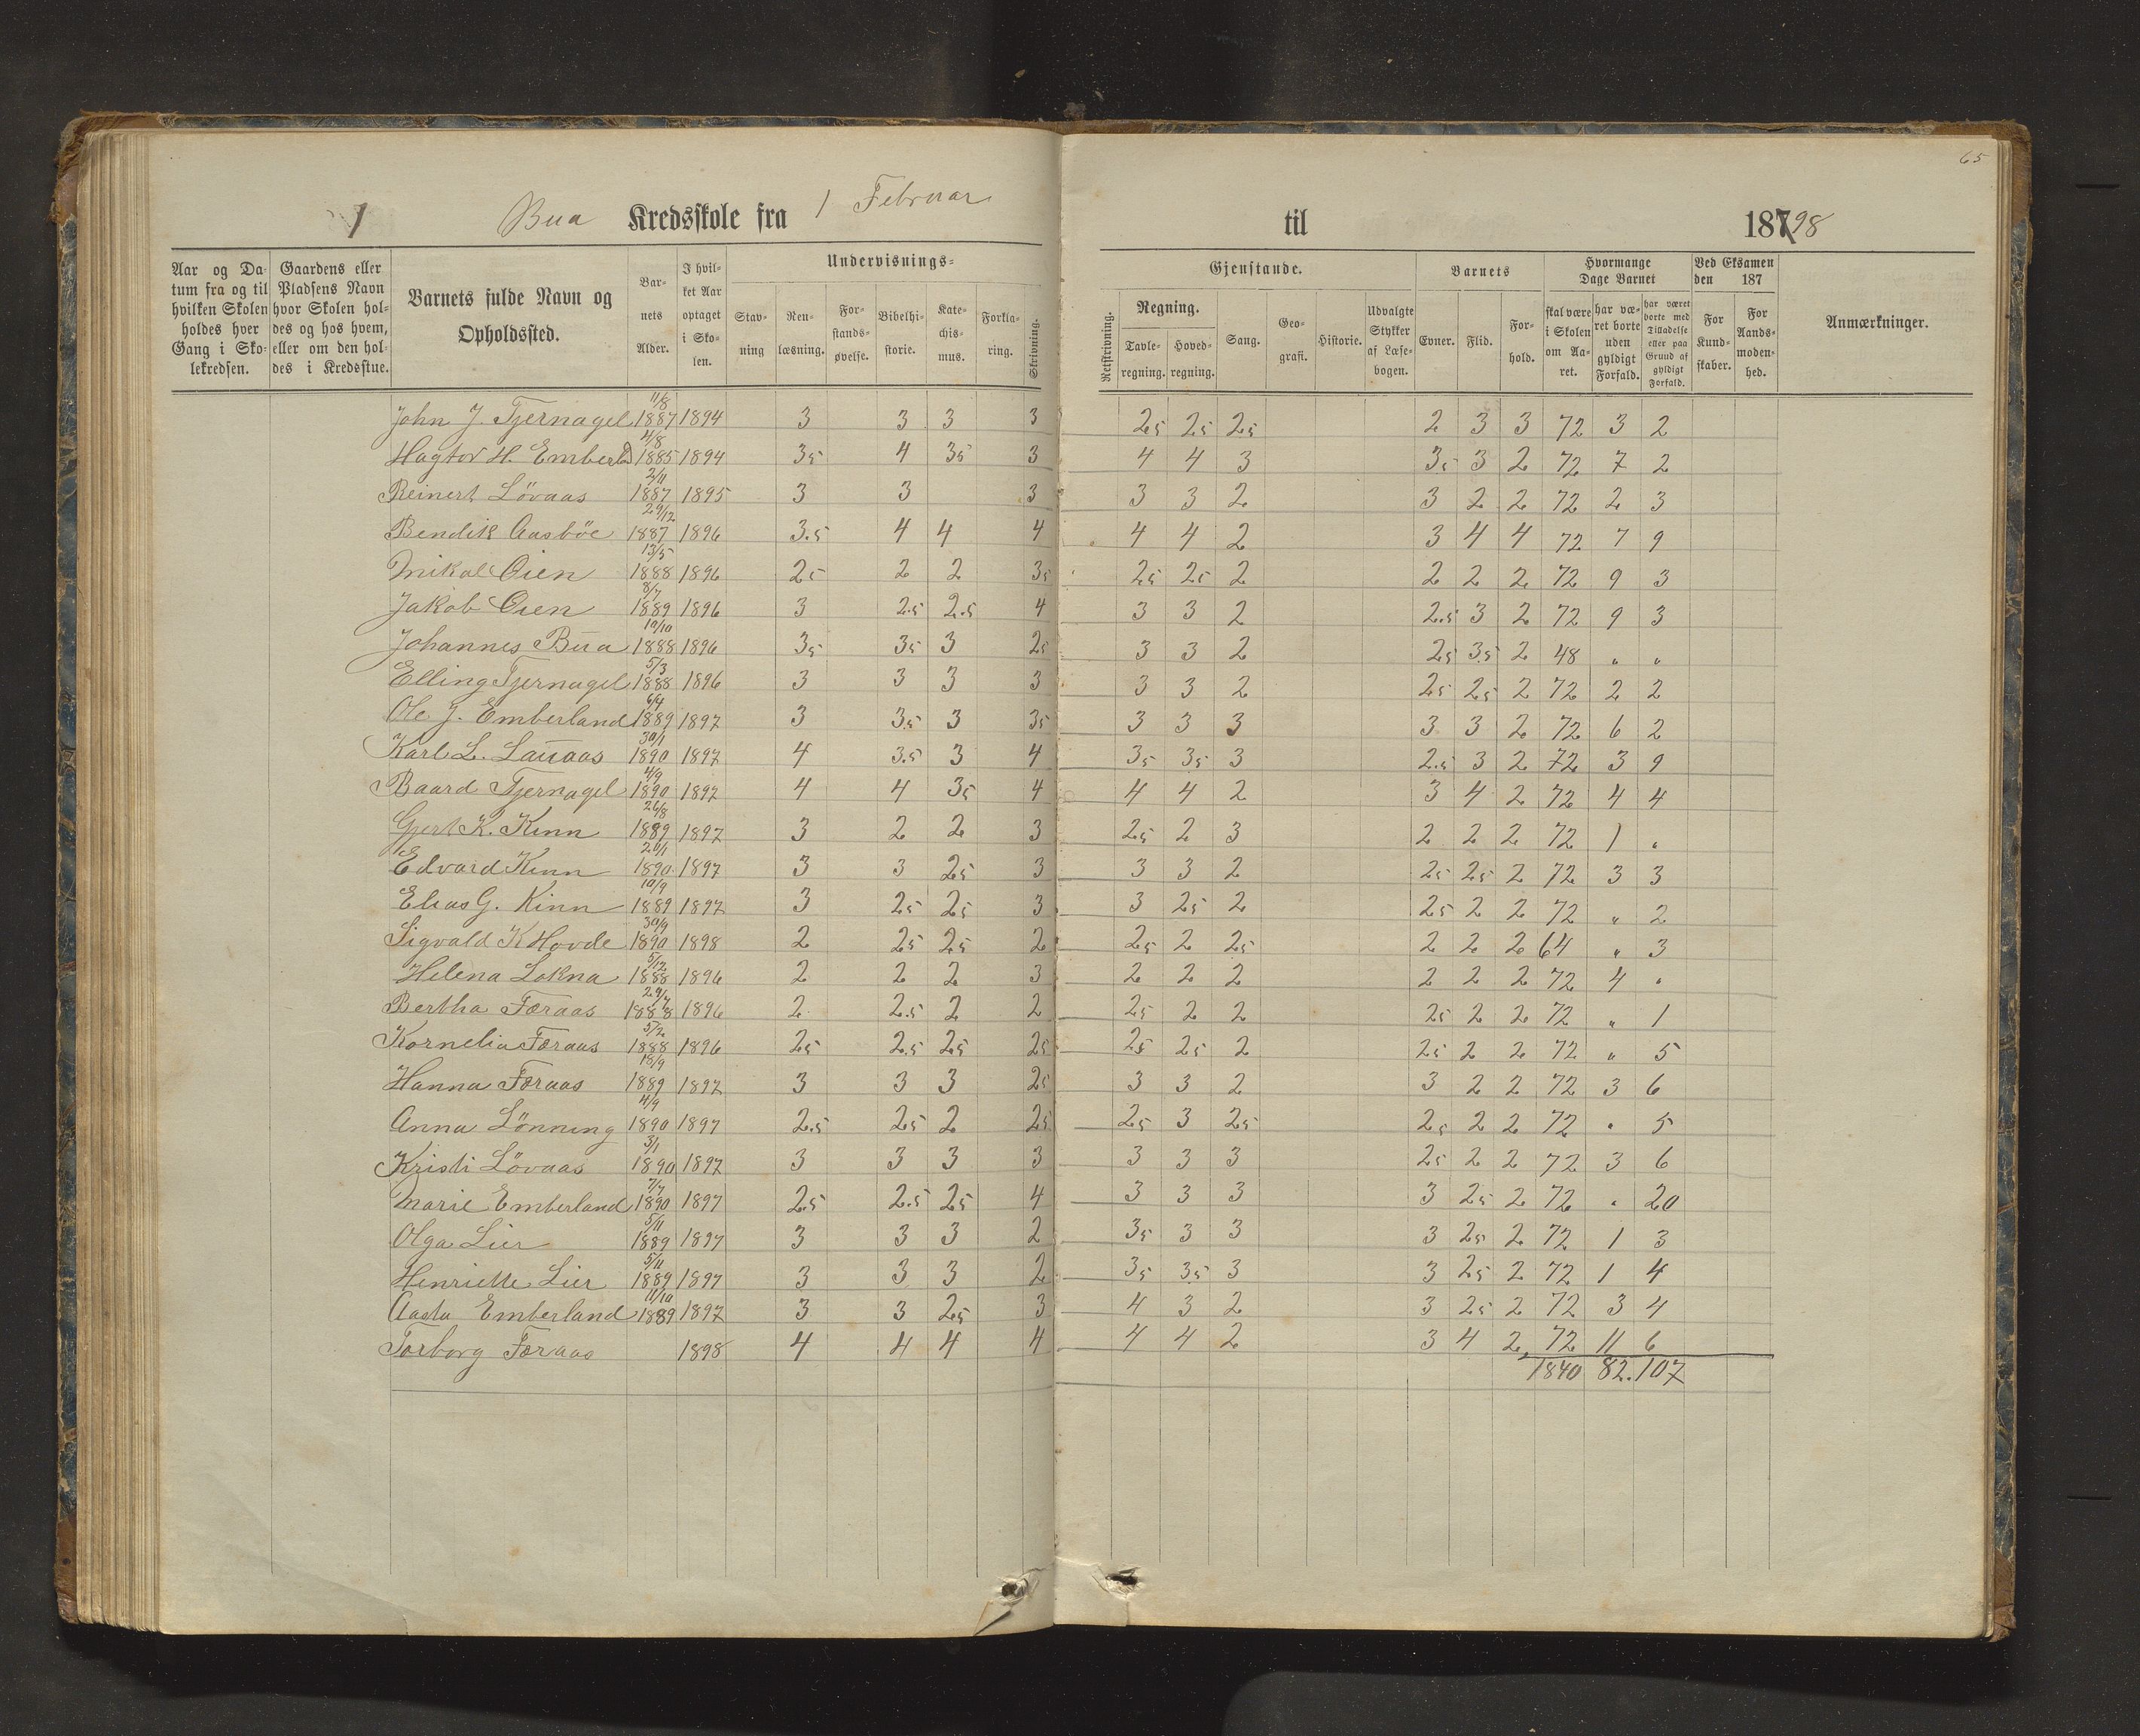 65
1 Bua Kredsskole fra 1 Februar til 187 98
Aar og Datum fra og til hvilken Skolen holdes hver Gang i Skolekredsen.
Gaardens eller Pladsens Navn hvor Skolen holdes og hos hvem, eller om den holdes i Kredsstue.
Barnets fulde Navn og Opholdssted.
Barnets Alder.
I hvilket Aar optaget i Skolen.
Undervisnings-
Stavning
Renlæsning.
Forstandsøvelse.
Bibelhistorie.
Katechismus.
Forklaring.
Skrivning.
Gjenstande.
Retskrivning.
Regning.
Tavleregning.
Hovedregning.
Sang.
Geografi.
Historie.
Udvalgte Stykker af Læsebogen.
Barnets
Evner.
Flid.
Forhold.
Hvormange Dage Barnet
skal være i Skolen om Aaret.
har været borte uden gyldigt Forfald.
har været borte med Tilladelse eller paa Grund af gyldigt Forfald.
Ved Eksamen den 187
For Kundskaber.
For Aandsmodenhed.
Anmærkninger.
John J. Tjernagel 11/8 1887 1894 3 3 3 3 25 25 25 2 3 3 72 3 2
Hagtor H. Emberld 4/8 1885 1894 35 4 35 3 4 4 3 35 3 2 72 7 2
Reinert Lövaas 2/11 1887 1895 3 3 3 3 3 2 3 2 2 72 2 3
Bendik Aasböe 29/12 1887 1896 3.5 4 4 4 4 4 2 3 4 4 72 7 9
Mikal Öien 13/5 1888 1896 25 2 2 35 25 25 2 2 2 2 72 9 3
Jakob Öien 8/7 1889 1896 3 2.5 2.5 4 3 3 2 2.5 3 2 72 9 3
Johannes Bua 10/10 1888 1896 35 35 3 25 3 3 2 25 35 2 48 " "
Elling Tjernagel 5/3 1888 1896 3 3 3 3 3 3 2 25 25 2 72 2 2
Ole J. Emberland 6/4 1889 1897 3 3.5 3 35 3 3 3 3 3 2 72 6 2
Karl L. Lauaas 30/1 1890 1897 4 3.5 3 4 35 35 3 2.5 3 2 72 3 9
Baard Tjernagel 4/9 1890 1897 4 4 35 4 4 4 2 3 4 2 72 4 4
Gjert K. Kinn 26/8 1889 1897 3 2 2 3 25 2 3 2 2 2 72 1 "
Edvard Kinn 20/1 1890 1897 3 3 25 3 3 3 2 25 25 2 72 3 3
Elias G. Kinn 10/9 1889 1897 3 25 25 3 3 25 2 25 2 2 72 " 2
Sigvald K Hovde 30/9 1890 1898 2 25 25 2 25 2 25 2 2 2 64 " 3
Helena Lokna 5/12 1888 1896 2 2 2 3 2 2 2 2 2 2 72 4 "
Bertha Færaas 29/7 1888 1896 2 2.5 2 2 25 2 2 25 2 2 72 " 1
Kornelia Færaas 5/2 1888 1896 25 25 25 25 25 25 2 25 2 2 72 " 5
Hanna Færaas 18/9 1889 1897 3 3 3 25 3 3 2 3 2 2 72 3 6
Anna Lönning 4/9 1890 1897 2.5 25 2 25 25 3 25 25 2 2 72 " 5
Kristi Lövaas 3/1 1890 1897 3 3 3 3 3 3 3 25 2 2 72 3 6
Marie Emberland 7/7 1890 1897 2.5 2.5 25 4 3 3 3 3 25 2 72 " 20
Olga Lier 5/11 1889 1897 3 3 3 2 35 3 3 3 25 2 72 1 3
Henriette Lier 5/11 1889 1897 3 3 3 2 35 3.5 3 3 25 2 72 1 4
Aasta Emberland 11/10 1889 1897 3 3 25 3 4 3 2 3 25 2 72 3 4
Torborg Færaas 1898 4 4 4 4 4 4 2 3 4 2 72 11 6
1840 82. 107